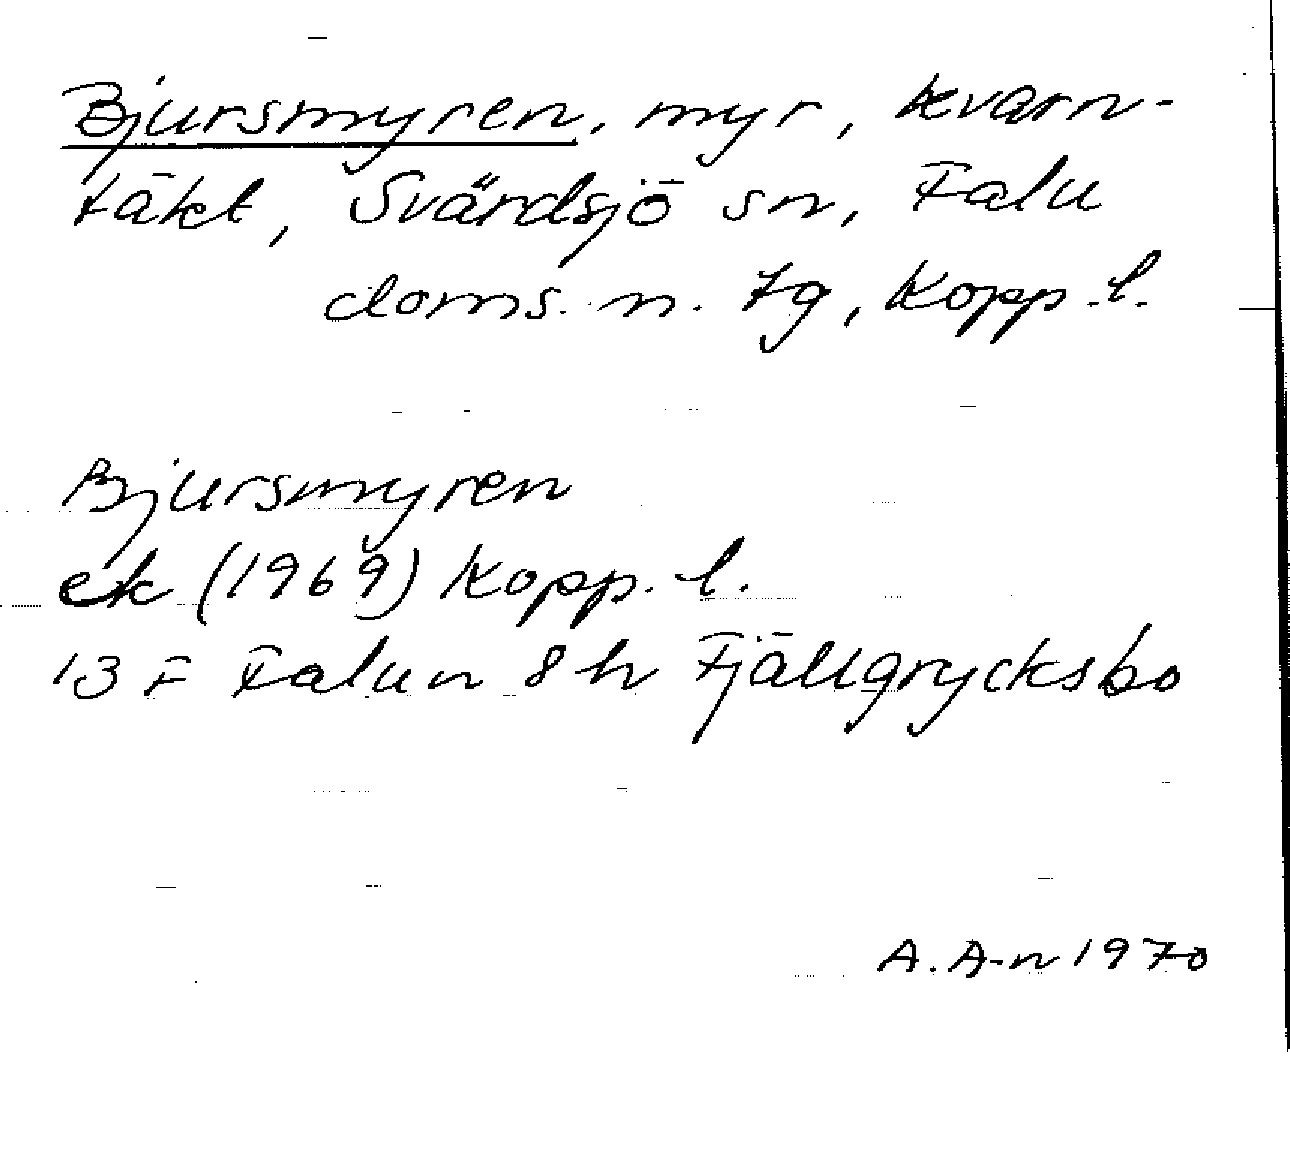 Bjursmyren, myr, kvarn-
täkt, Svärdsjö sn, Falu
doms. n. tg, Kopp. l.
Bjursmyren
ek (1969) Kopp. l.
13 F Falun 8 h Fjällgrycksbo
A. A-n 1970